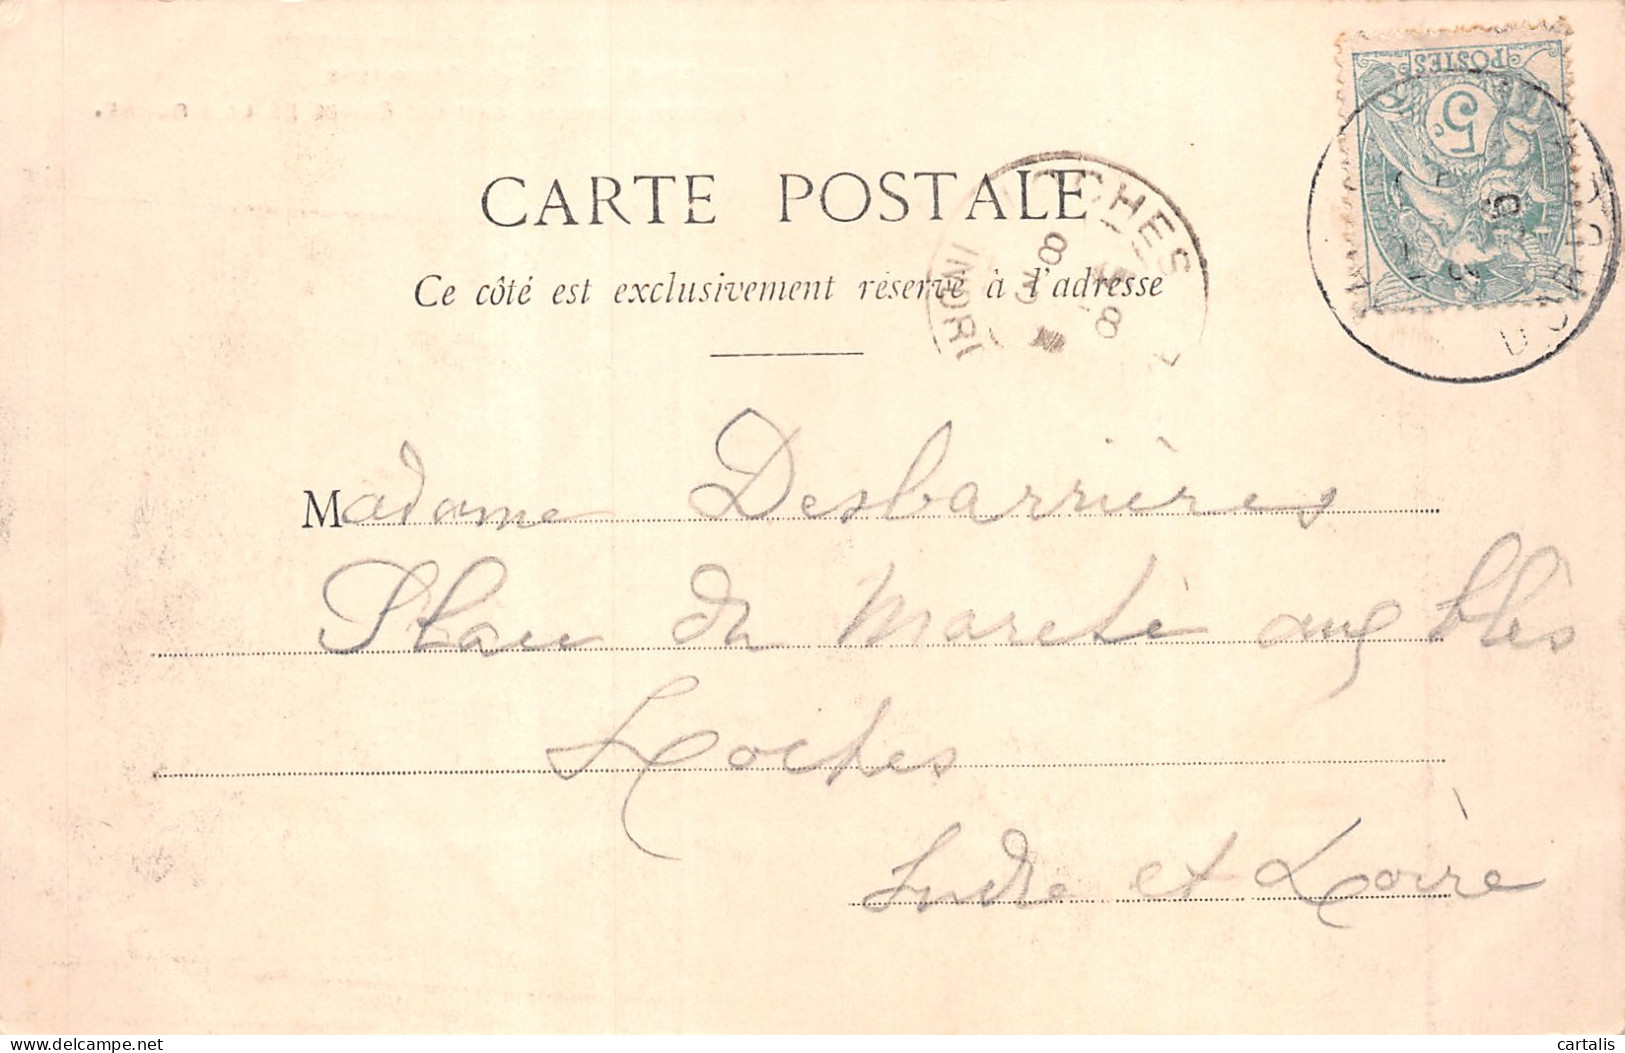 POSTES
5c
CARTE POSTALE
LOCHES
8
8
Ce côté est exclusivement réservé à l'adresse
Madame Desbarrières
Place du Marché aux blès
Loches
Indre et Loire
delcampe.net
cartalis